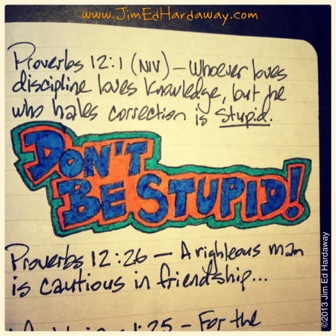 www.JimEdHardaway.com
Proverbs 12:1 (NIV) – Whoever loves
discipline loves knowledge, but he
who hates correction is stupid.
DON'T
BE STUPID!
Proverbs 12:26 – A righteous man
is cautious in friendship...
1:25 – For the
©2013 Jim Ed Hardaway